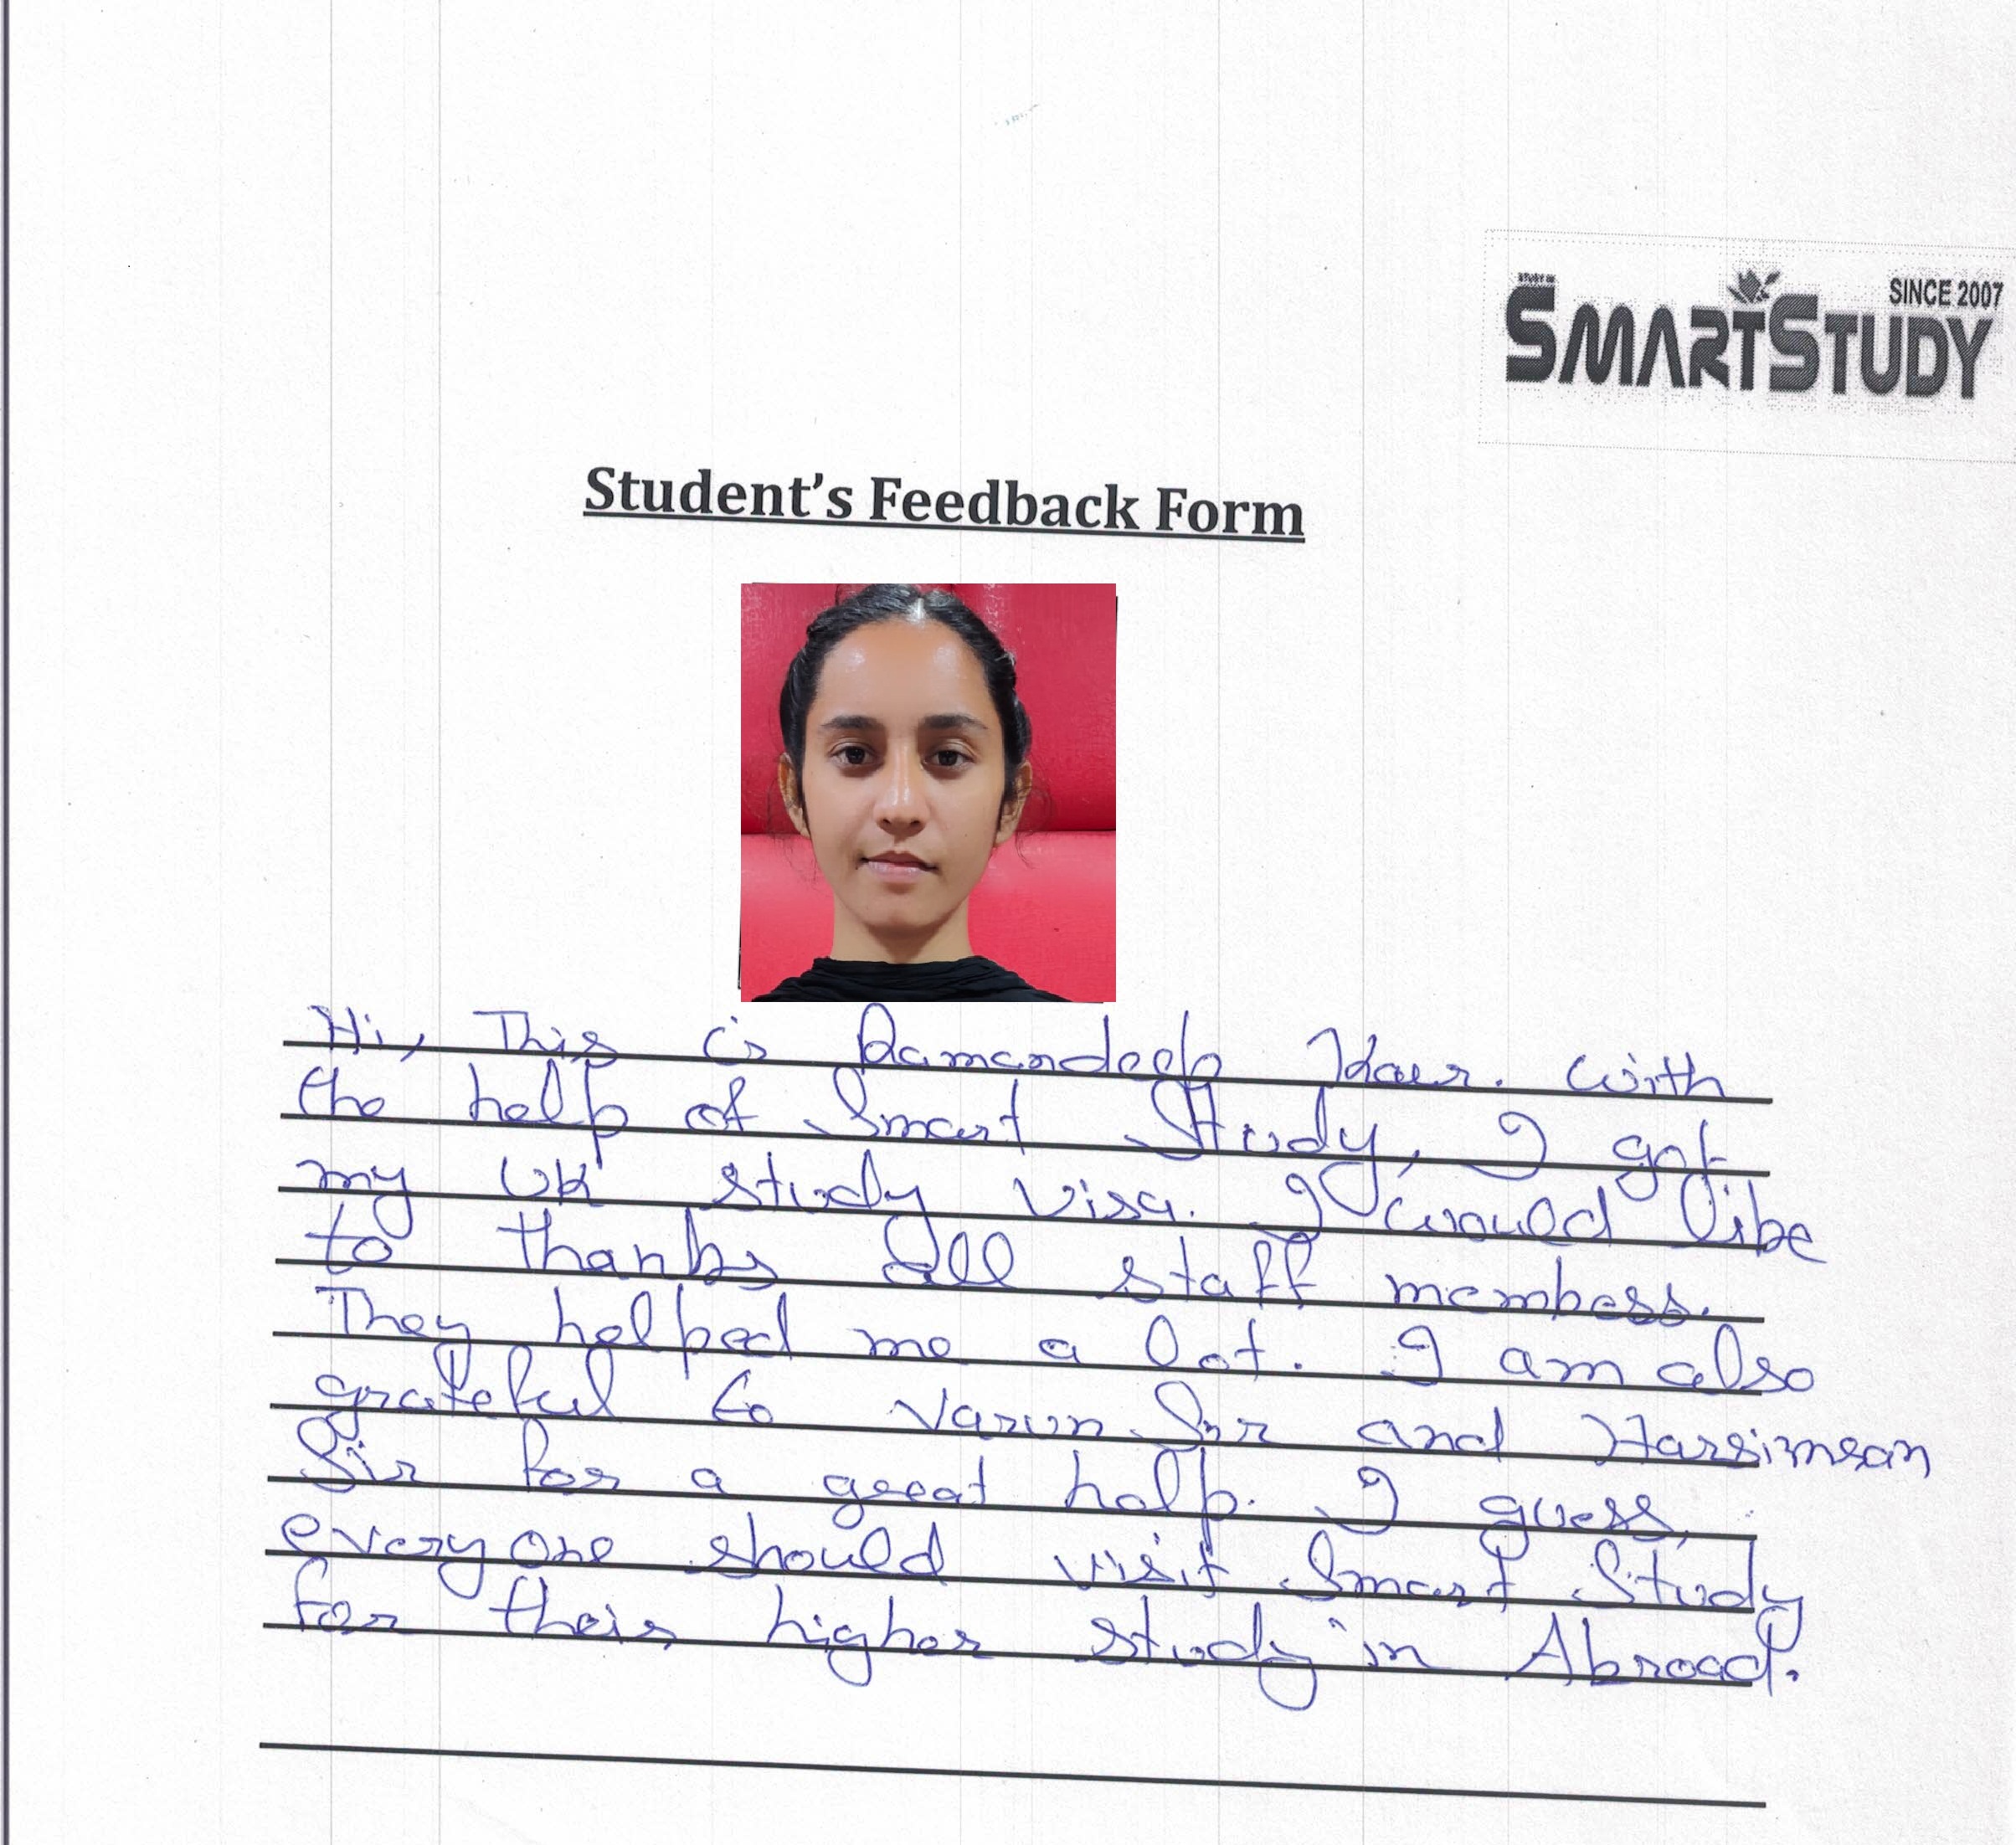 STUDY IN
SINCE 2007
SMARTSTUDY
Student's Feedback Form
Hi, This is Ramandeep Kaur. With
the help of Smart Study, I got
my UK study visa. I would like
to thanks all staff members.
They helped me a lot. I am also
grateful to Varun Sir and Harsimran
Sir for a great help. I guess,
everyone should visit Smart Study
for their higher study in Abroad.